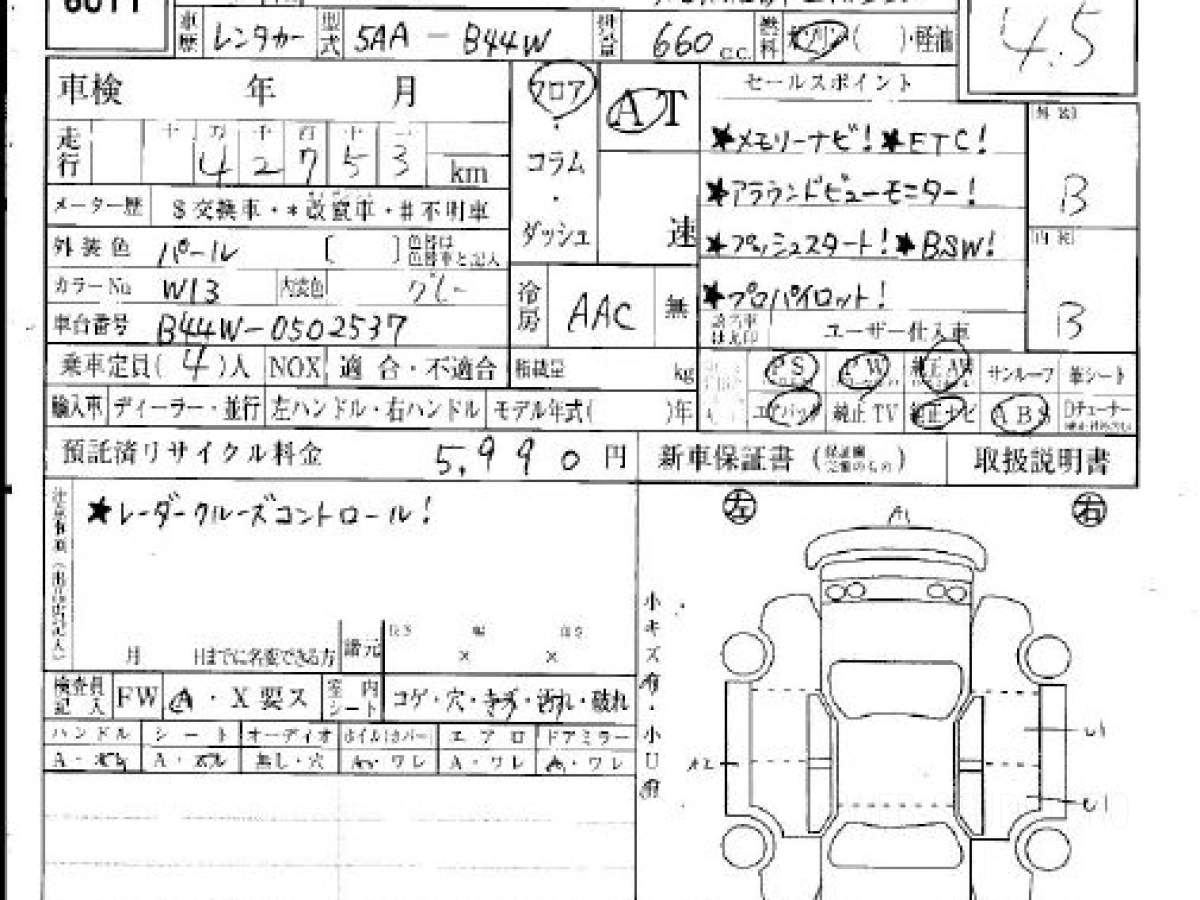 6011
車歴 レンタカー 型式 5AA - B44W 排気量 660 c.c. 燃料 ガソリン( )・軽油
4.5
車検 年 月
フロア・コラム・ダッシュ
AT
速
セールスポイント
★メモリーナビ! ★ETC!
★アラウンドビューモニター!
★プッシュスタート! ★BSW!
★プロパイロット!
外装 B
内装 B
走行 十 万 千 百 十 一
4 2 7 5 3 km
メーター歴 $交換車・*改竄車・#不明車
外装色 パール [ ] 色替は色替車と記入
カラーNo. W13 内装色 グレー
車台番号 B44W-0502537
冷房 AAC 無
該当車は丸印 ユーザー仕入車
乗車定員( 4 )人 NOX 適合・不適合 積載量 kg
PS PW 純正AW サンルーフ 革シート
輸入車 ディーラー・並行 左ハンドル・右ハンドル モデル年式( )年
エアバッグ 純正TV 純正ナビ ABS Dチューナー
預託済リサイクル料金 5,990円 新車保証書 取扱説明書
注意事項(出品店記入)
★レーダークルーズコントロール!
月 日までに名変できる方 諸元 長さ 幅 高さ
× ×
検査員記入 FW A・X要ス 室内シート コゲ・穴・キズ・汚れ・破れ
ハンドル シート オーディオ ホイル(カバー) エアロ ドアミラー
A・スレ A・スレ 無し・穴 A・ワレ A・ワレ A・ワレ
小キズ有・小U有
左 右
A1
A2
U1
U1